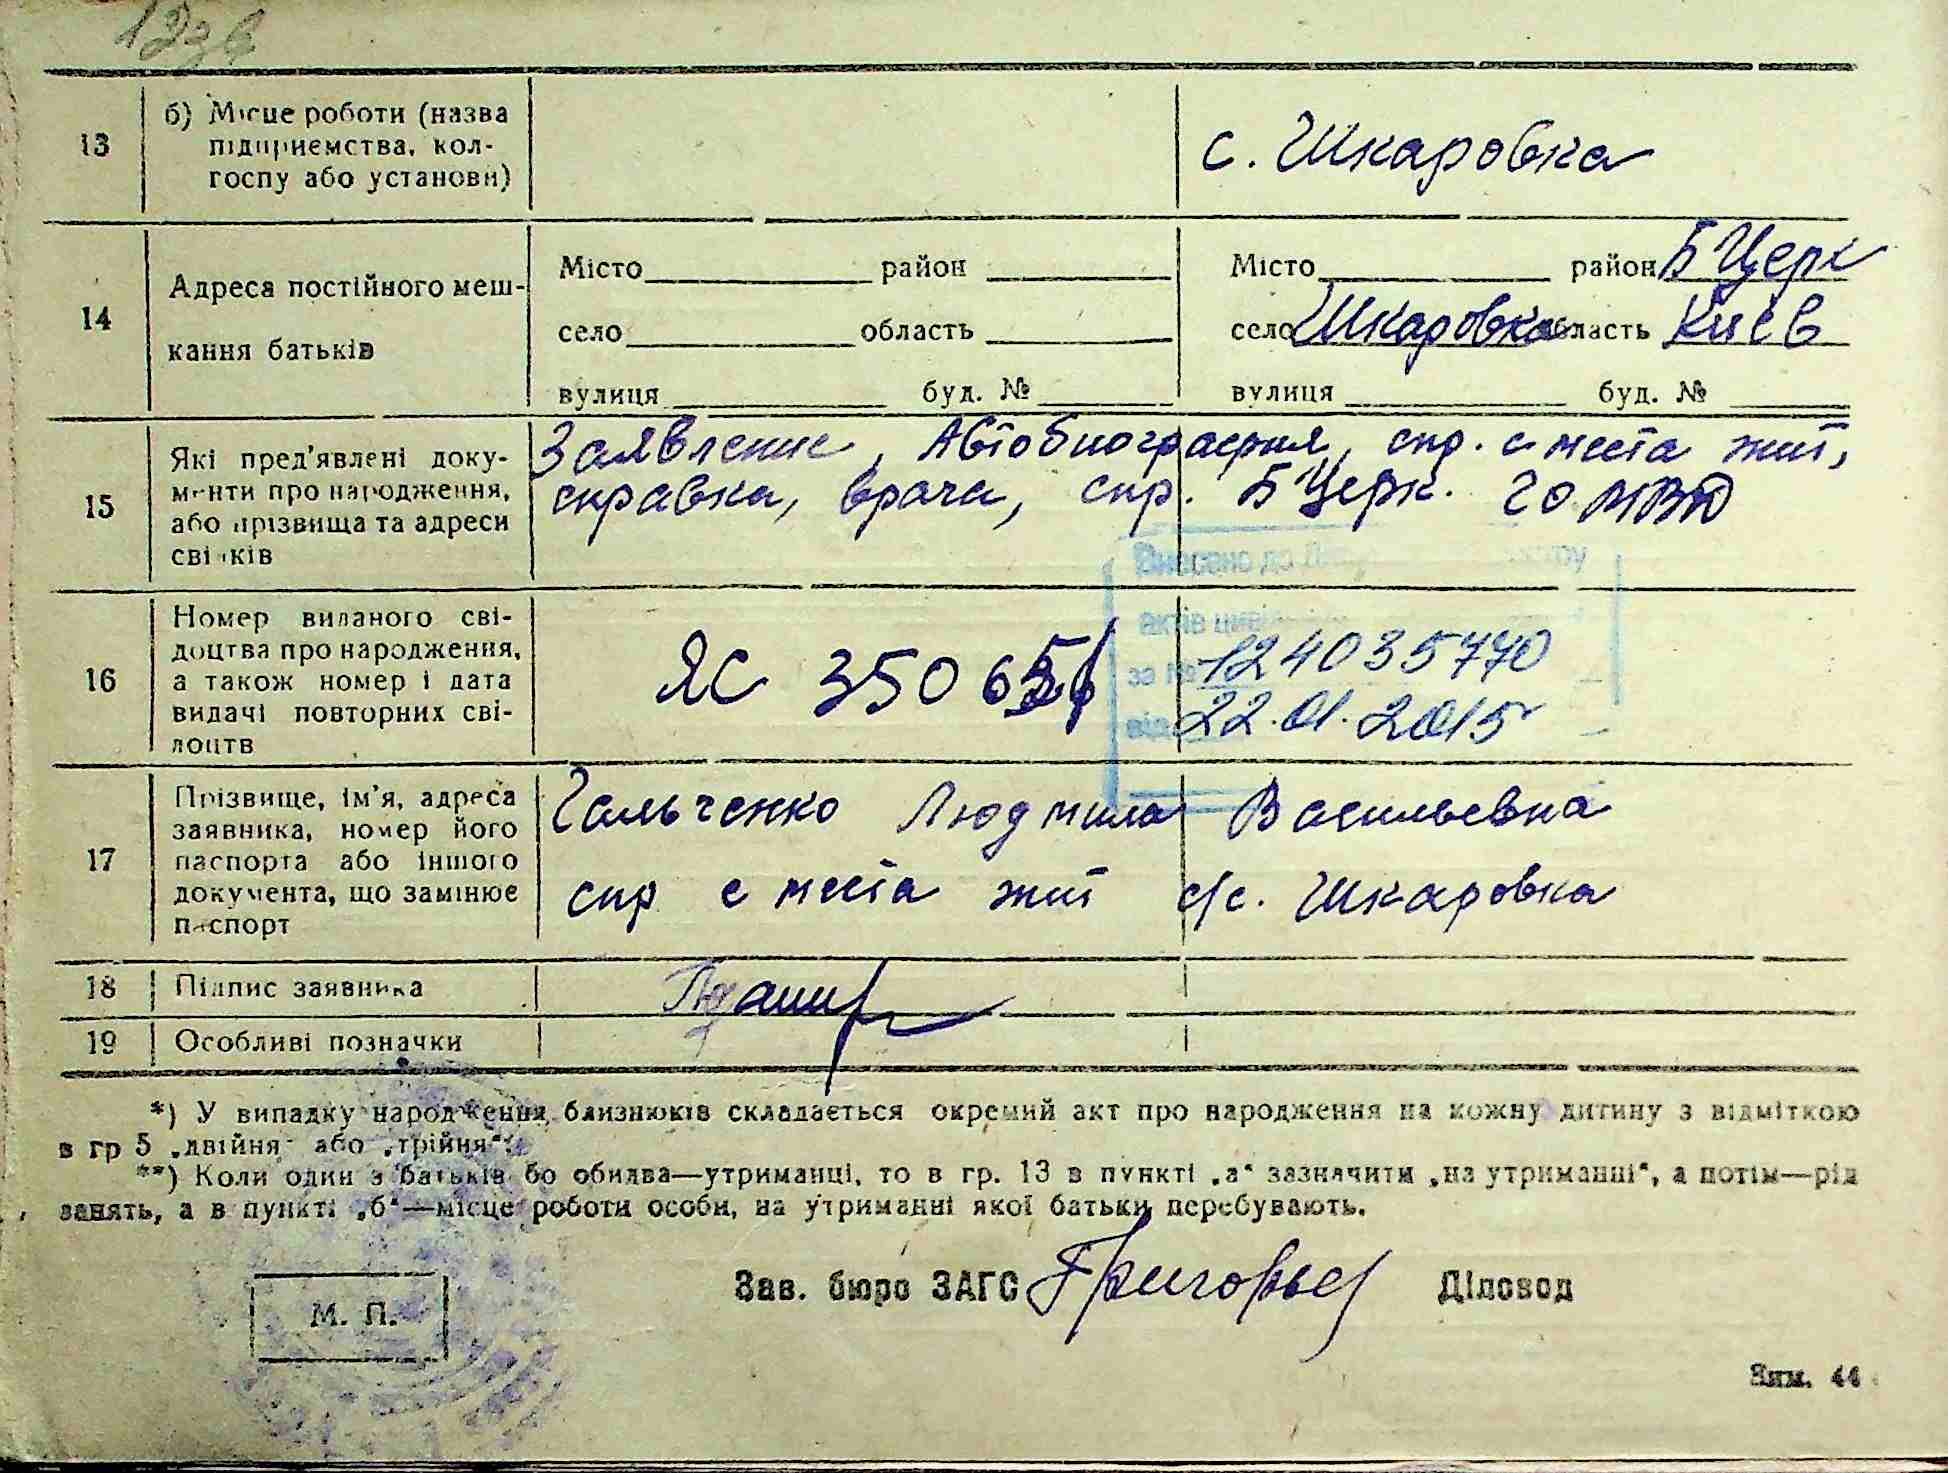 13
б) Місце роботи (назва
підприємства, кол-
госпу або установи)
с. Шкаровка
14
Адреса постійного меш-
кання батьків
Місто район
село область
вулиця буд. №
Місто район БЦерк
село Шкаровка область Киев
вулиця буд. №
15
Які пред'явлені доку-
менти про народження,
або прізвища та адреси
свідків
Заявление, Автобиография, спр. с места жит,
справка, врача, спр. БЦерк. ГО МВД
16
Номер виданого сві-
доцтва про народження,
а також номер і дата
видачі повторних сві-
доцтв
ЯС 350
Внесено до
актів
за № 124035770
від 22.01.2015
17
Прізвище, ім'я, адреса
заявника, номер його
паспорта або іншого
документа, що замінює
паспорт
Гальченко Людмила Васильевна
спр с места жит с/с. Шкаровка
18
Підпис заявника
19
Особливі позначки
*) У випадку народження близнюків складається окремий акт про народження на кожну дитину з відміткою
в гр 5 „двійня" або „трійня".
**) Коли один з батьків бо обидва—утриманці, то в гр. 13 в пункті „а" зазначити „на утриманні", а потім—рід
занять, а в пункті „б"—місце роботи особи, на утриманні якої батьки перебувають.
Зав. бюро ЗАГС Діловод
М. П.
Зим. 44